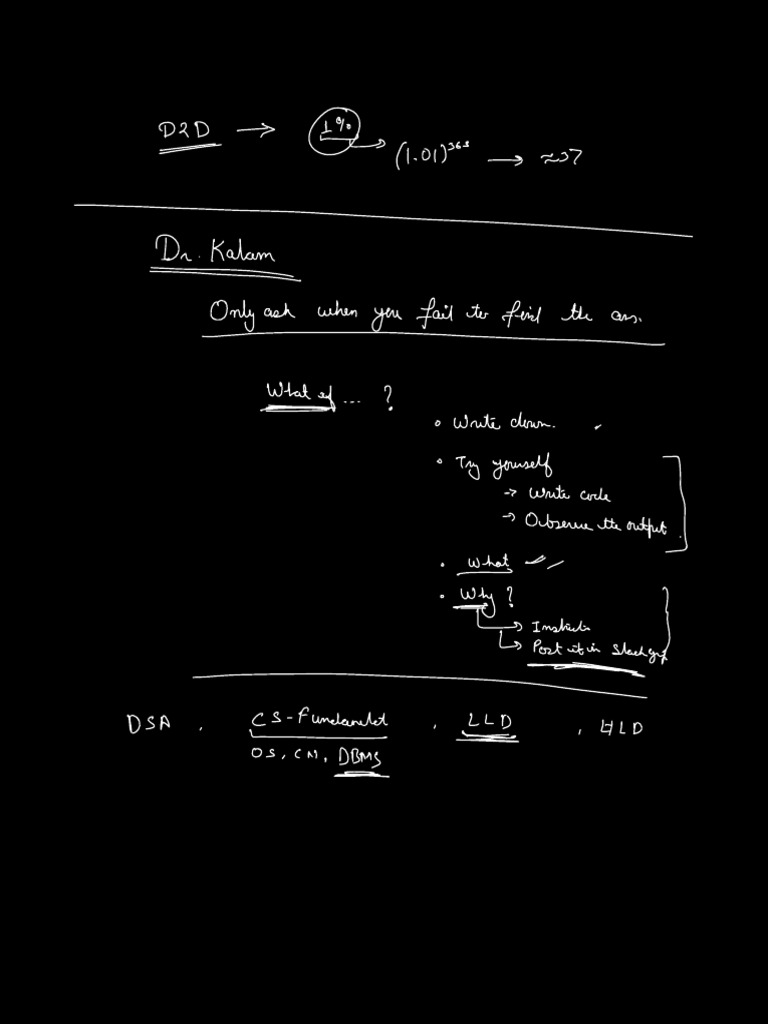 D2D → 1% → (1.01)^365 → ≈37
Dr. Kalam
Only ask when you fail to find the ans.
What if ... ?
• Write down.
• Try yourself
→ Write code
→ Observe the output
• What
• Why ?
→ Instructor
→ Post it in Slack grp
DSA , CS-Fundamental , LLD , HLD
OS, CN, DBMS